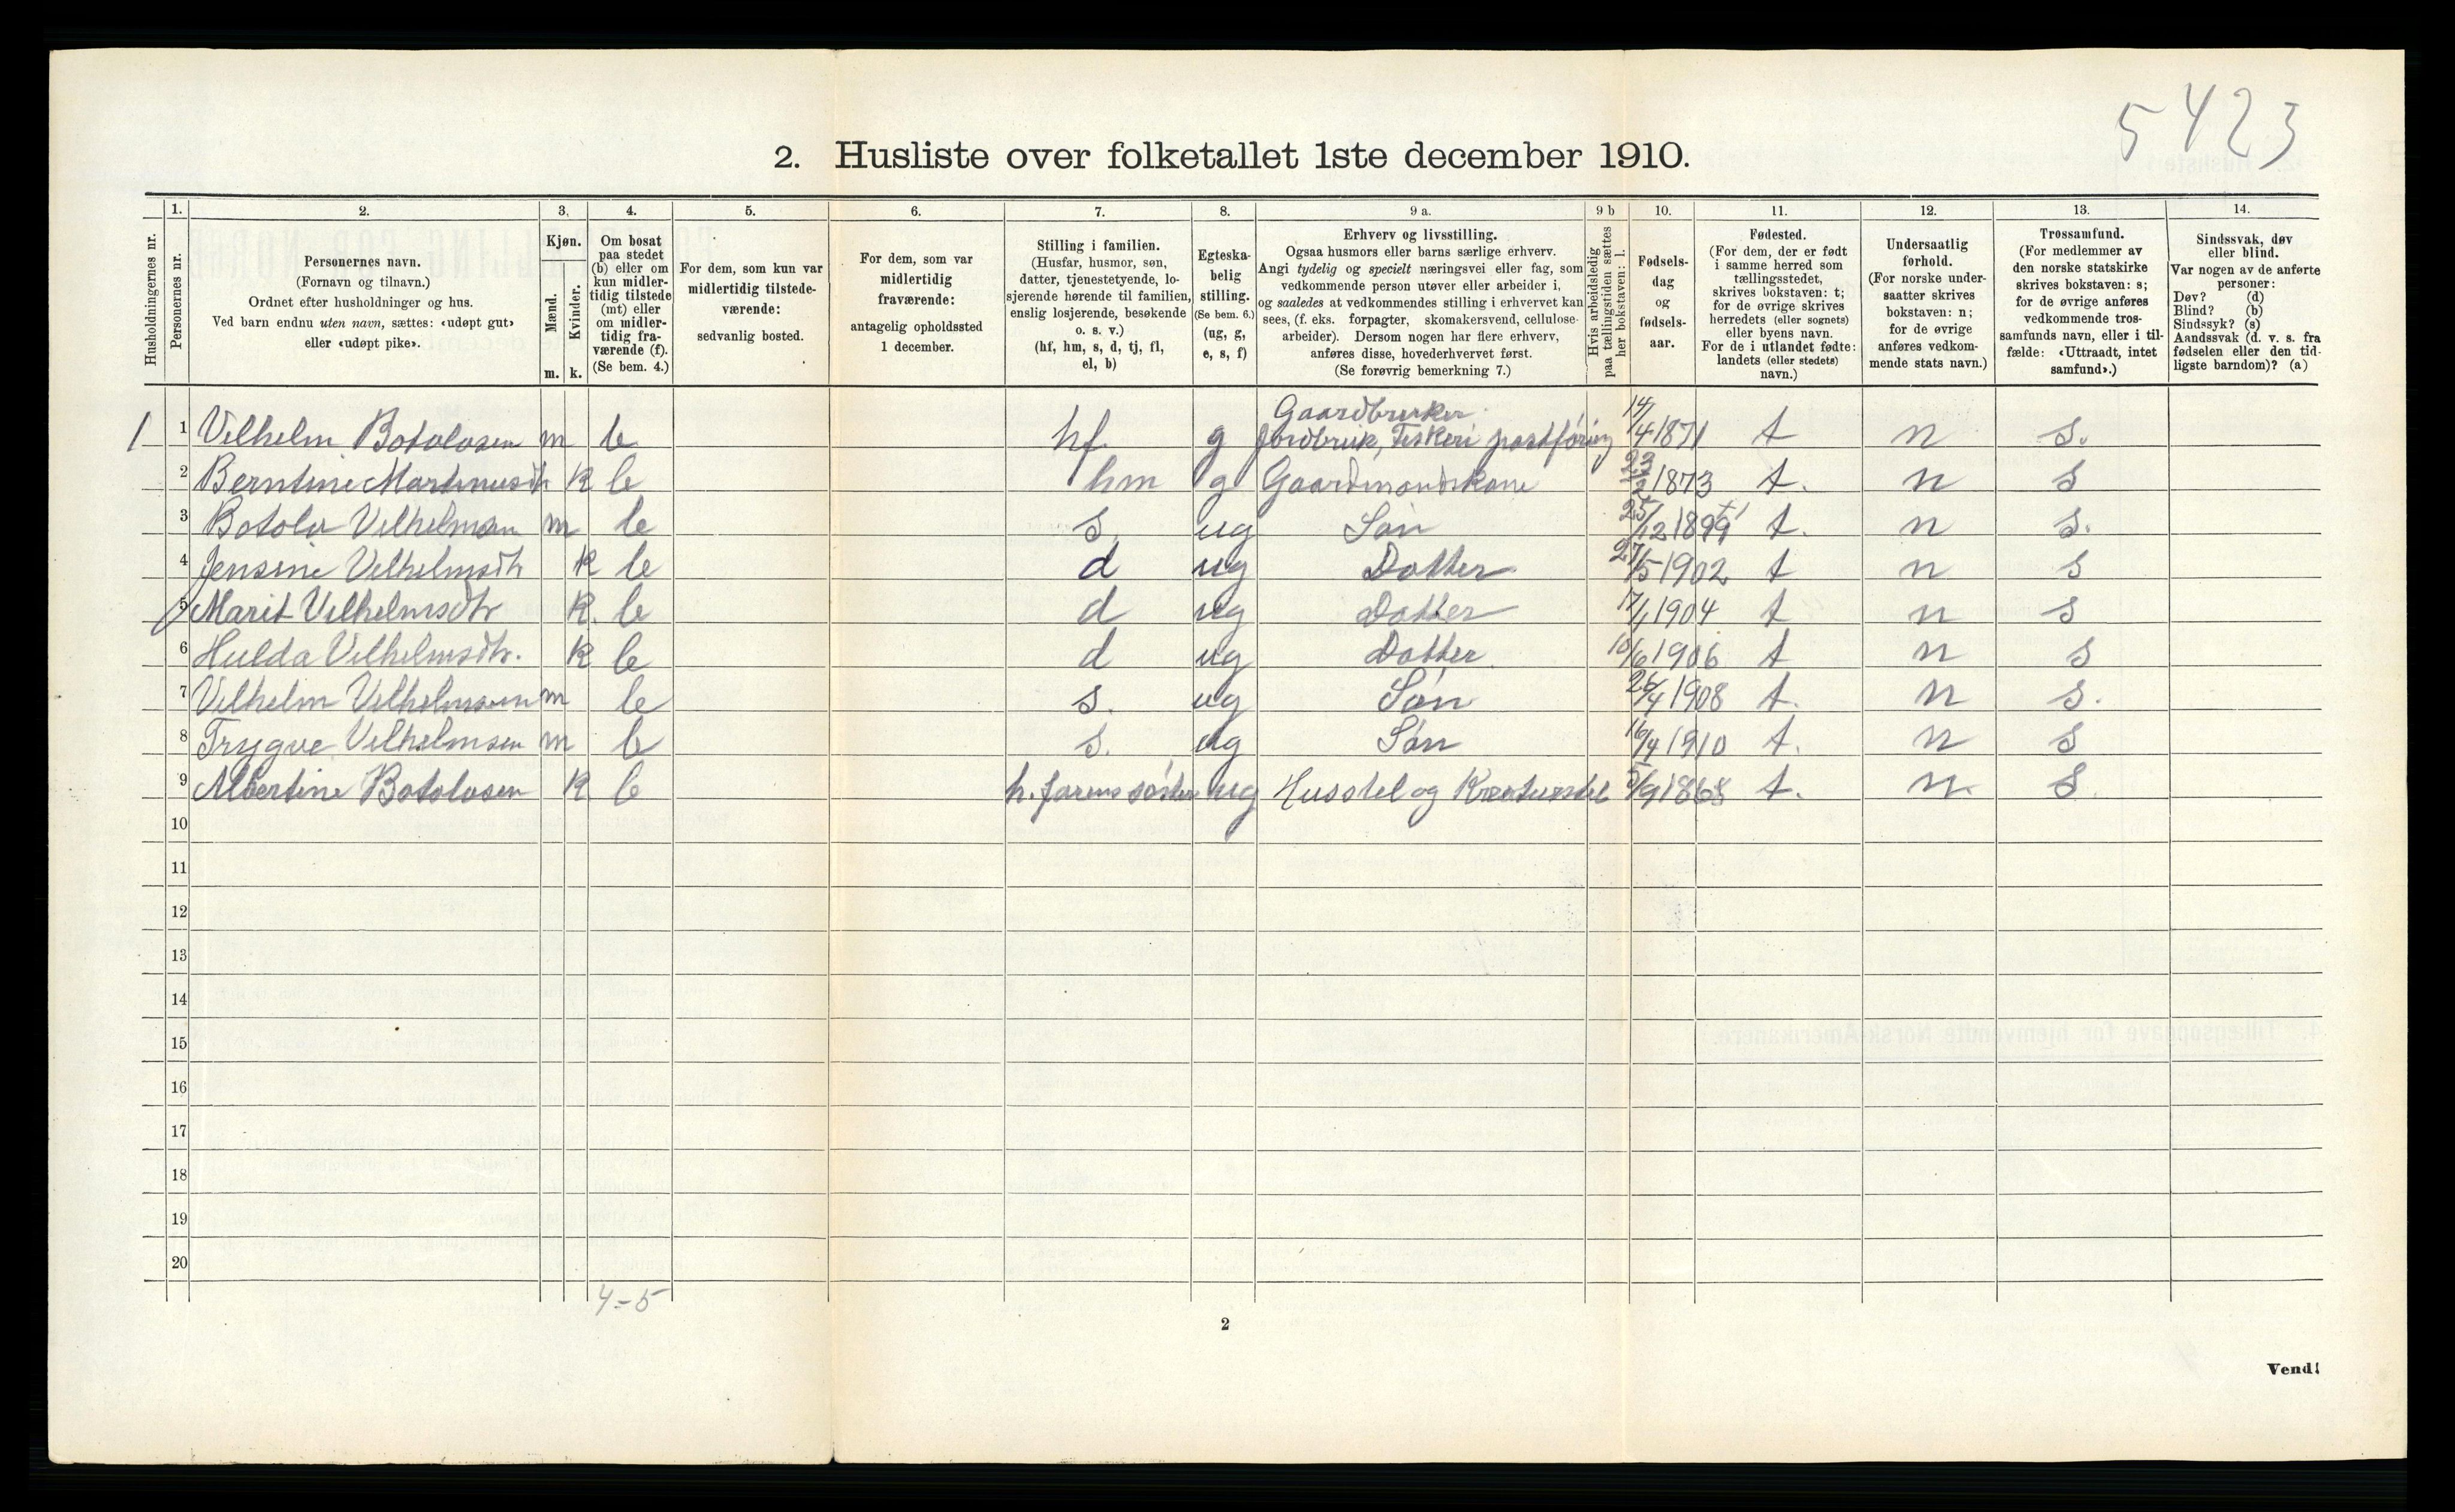 5423
2. Husliste over folketallet 1ste december 1910.
Husholdningernes nr.
1.
Personernes nr.
2.
Personernes navn.
(Fornavn og tilnavn.)
Ordnet efter husholdninger og hus.
Ved barn endnu uten navn, sættes: «udøpt gut»
eller «udøpt pike».
3.
Kjøn.
Mænd.
Kvinder.
m. k.
4.
Om bosat
paa stedet
(b) eller om
kun midler-
tidig tilstede
(mt) eller
om midler-
tidig fra-
værende (f).
(Se bem. 4.)
5.
For dem, som kun var
midlertidig tilstede-
værende:
sedvanlig bosted.
6.
For dem, som var
midlertidig
fraværende:
antagelig opholdssted
1 december.
7.
Stilling i familien.
(Husfar, husmor, søn,
datter, tjenestetyende, lo-
sjerende hørende til familien,
enslig losjerende, besøkende
o. s. v.)
(hf, hm, s, d, tj, fl,
el, b)
8.
Egteska-
belig
stilling.
(Se bem. 6.)
(ug, g,
e, s, f)
9 a.
Erhverv og livsstilling.
Ogsaa husmors eller barns særlige erhverv.
Angi tydelig og specielt næringsvei eller fag, som
vedkommende person utøver eller arbeider i,
og saaledes at vedkommendes stilling i erhvervet kan
sees, (f. eks. forpagter, skomakersvend, cellulose-
arbeider). Dersom nogen har flere erhverv,
anføres disse, hovederhvervet først.
(Se forøvrig bemerkning 7.)
9 b
Hvis arbeidsledig
paa tællingstiden sættes
her bokstaven: l.
10.
Fødsels-
dag
og
fødsels-
aar.
11.
Fødested.
(For dem, der er født
i samme herred som
tællingsstedet,
skrives bokstaven: t;
for de øvrige skrives
herredets (eller sognets)
eller byens navn.
For de i utlandet fødte:
landets (eller stedets)
navn.)
12.
Undersaatlig
forhold.
(For norske under-
saatter skrives
bokstaven: n;
for de øvrige
anføres vedkom-
mende stats navn.)
13.
Trossamfund.
(For medlemmer av
den norske statskirke
skrives bokstaven: s;
for de øvrige anføres
vedkommende tros-
samfunds navn, eller i til-
fælde: «Uttraadt, intet
samfund».)
14.
Sindssvak, døv
eller blind.
Var nogen av de anførte
personer:
Døv? (d)
Blind? (b)
Sindssyk? (s)
Aandssvak (d. v. s. fra
fødselen eller den tid-
ligste barndom)? (a)
Gaardbruker
1 1 Vilhelm Botolvsen m b hf. g Jordbruk, Fiskeri postføring 14/4 1871 t n s.
2 Berntine Martinusdtr k b hm g Gaardmandskone 23/2 1873 t. n s
3 Botolv Vilhelmsen m b s. ug Søn 25/12 1899 t. n s.
4 Jensine Vilhelmsdtr k b d ug Datter 27/5 1902 t n s
5 Marit Vilhelmsdtr k. b d ug Datter 17/1 1904 t n s
6 Hulda Vilhelmsdtr. k b d ug Datter 10/6 1906 t n s
7 Vilhelm Vilhelmsen m b s. ug Søn 26/4 1908 t. n s.
8 Trygve Vilhelmsen m b s. ug Søn 16/4 1910 t. n s
9 Albertine Botolvsen k b h. farens søster ug Husstel og Kreaturstel 5/9 1868 t. n. s.
10
11
12
13
14
15
16
17
18
19
20
4-5
2
Vend!